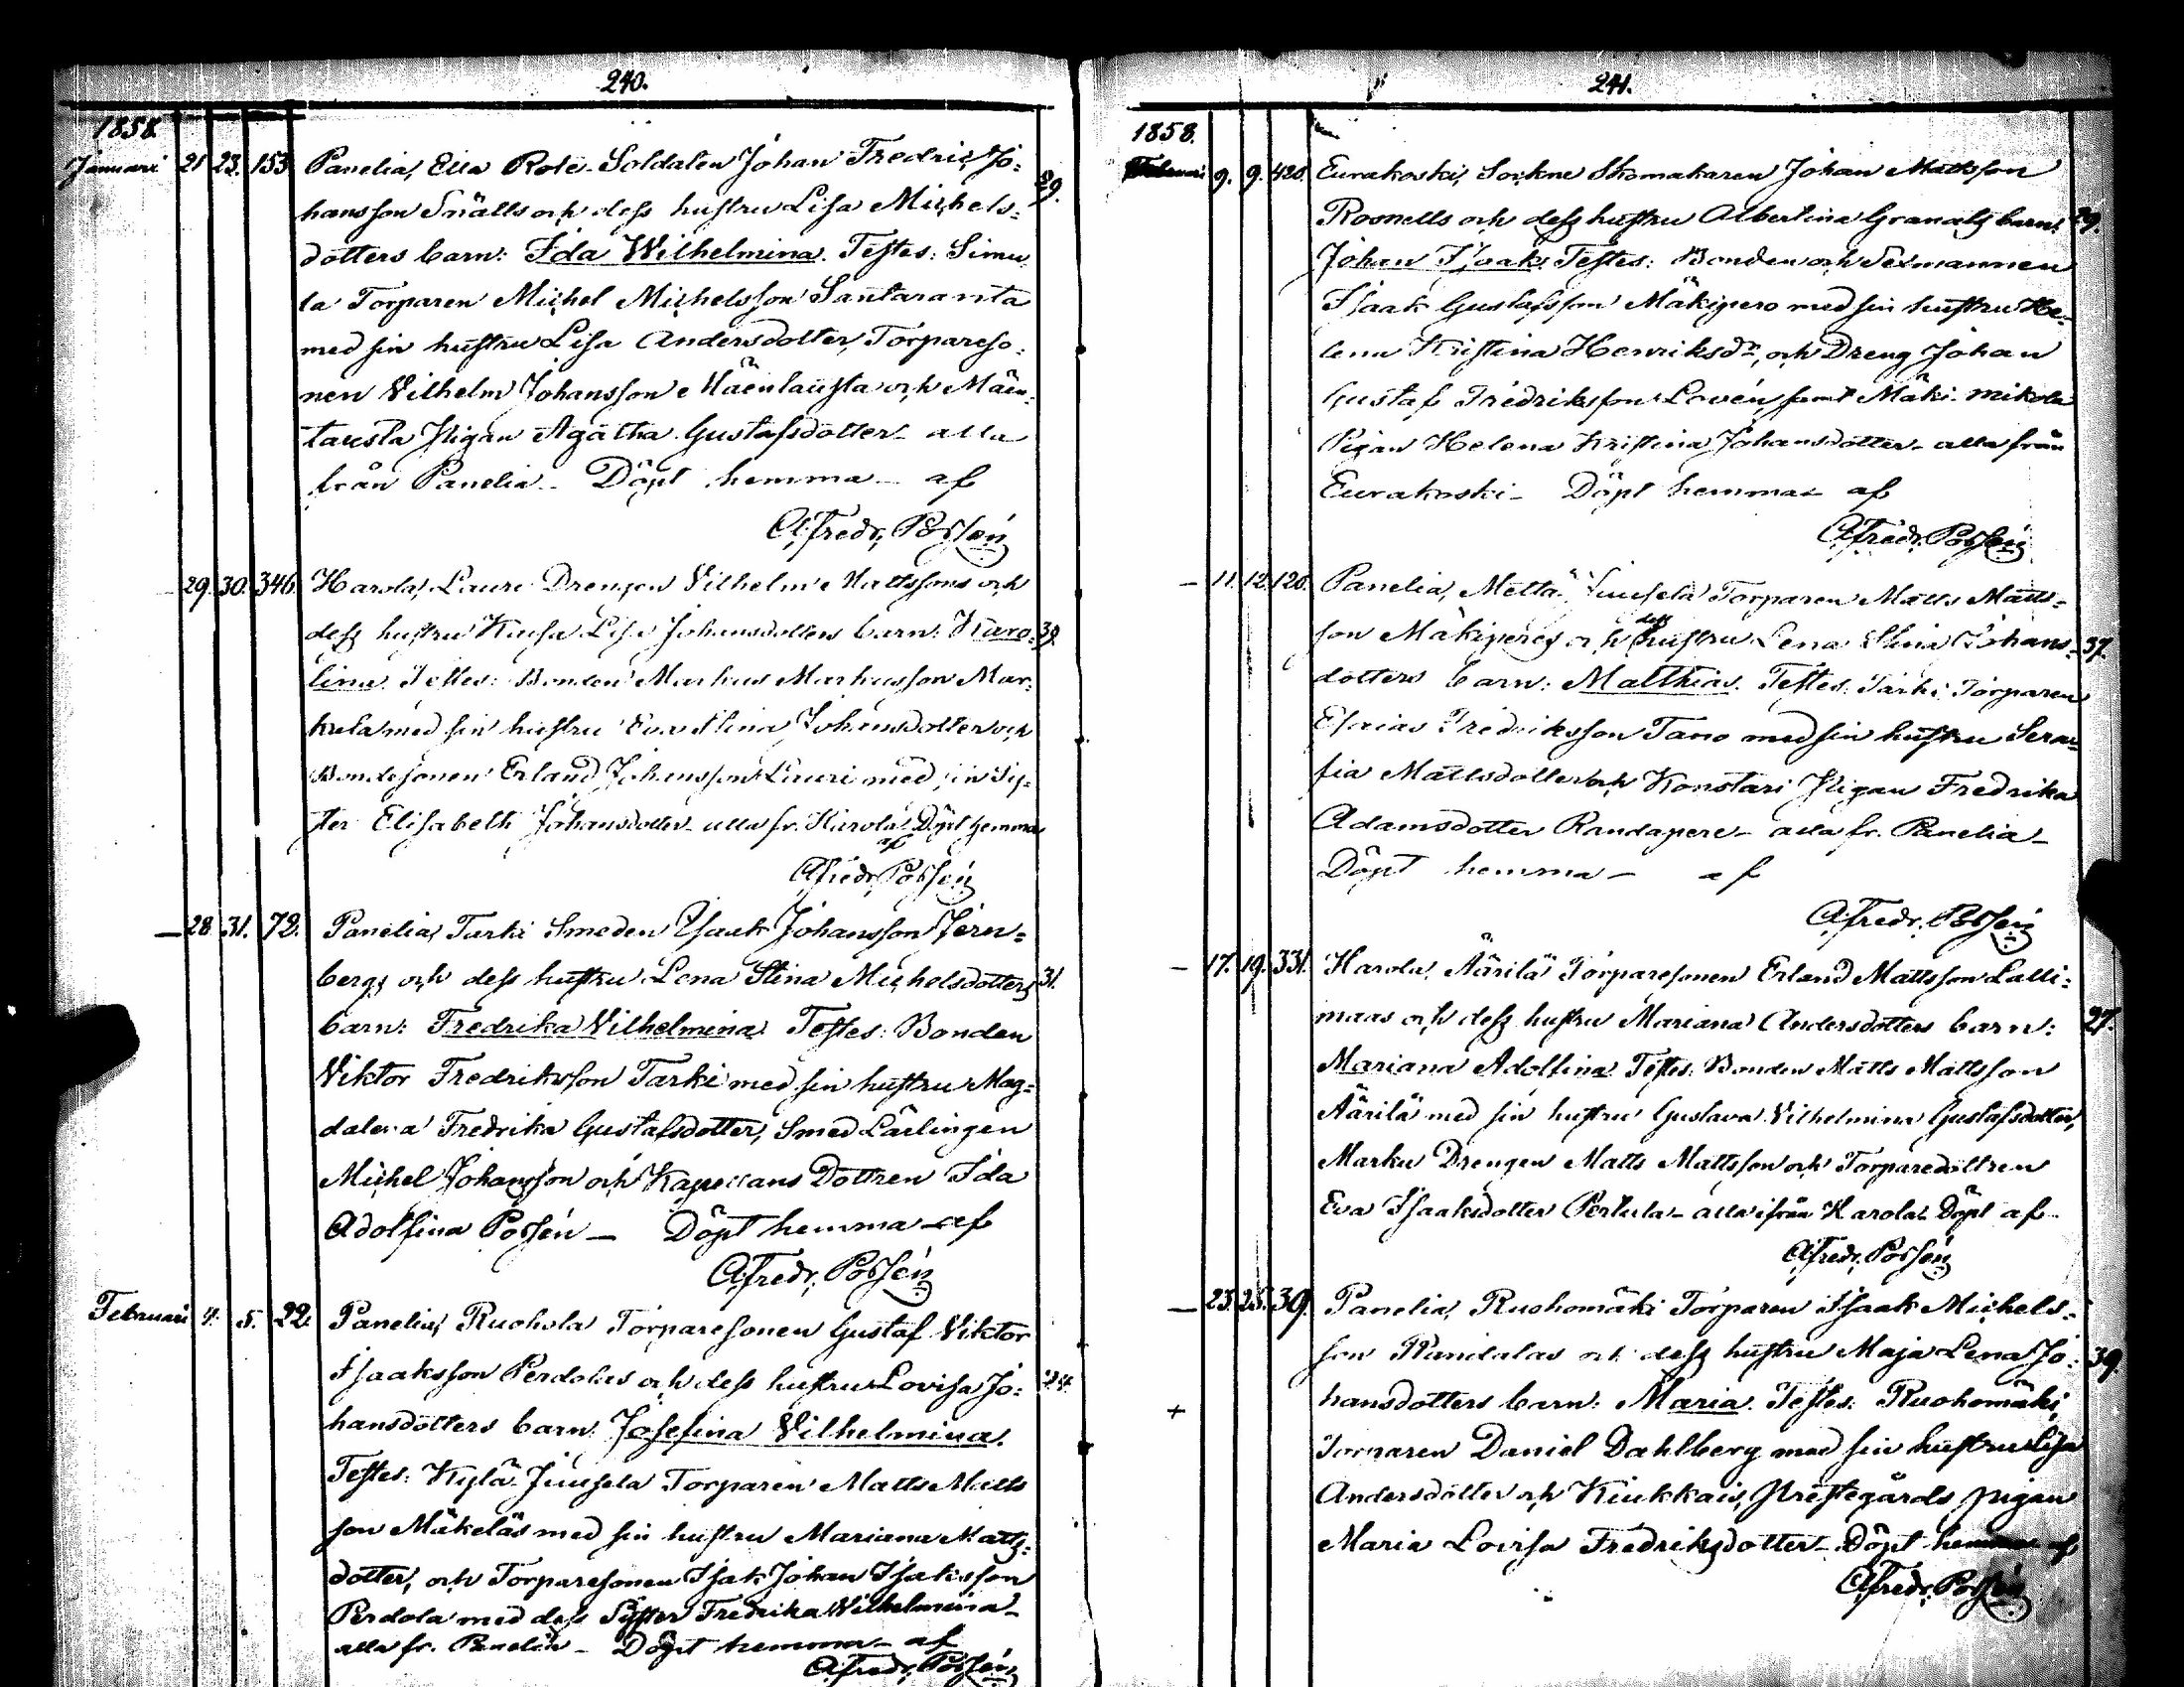 240.
1858.
Januari 21 23. 153 Panelia, Eila Rote Soldaten Johan Fredric Jo=
hansson Snälls och dess hustru Lisa Michels= 29.
dotters barn: Ida Wilhelmina. Testes: Simu
la Torparen Michel Michelsson Santaranta
med sin hustru Lisa Andersdotter, Torpareso=
nen Vilhelm Johansson Mäentausta och Mäen
tausta Pigan Agatha Gustafsdotter alla
från Panelia. Döpt hemma af
A. Fredr. Possén
29. 30. 346. Harola, Lauri Drengen Vilhelm Mattssons och
dess hustru Lisa Johansdotters barn: Karo=
lina. Testes: Bonden Markus Markusson Mar=
kula med sin hustru Eva Stina Johansdotter och
Bondesonen Erland Johansson Lauri med sin Sys=
ter Elisabeth Johansdotter alla fr. Harola. Döpt hemma
af
A. Fredr. Possén
— 28 31. 72. Panelia, Tarki Smeden Isaak Johansson Jern=
bergs och dess hustru Lena Stina Michelsdotters 31.
barn: Fredrika Vilhelmina. Testes: Bonden
Viktor Fredriksson Tarki med sin hustru Mag=
dalena Fredrika Gustafsdotter, Smed Lärlingen
Michel Johansson och Kapellans Dottren Ida
Adolfina Possén — Döpt hemma af
A. Fredr. Possén
Februari 4. 5. 22. Panelia, Ruohola Torparesonen Gustaf Viktor
Isaaksson Perdolas och dess hustru Lovisa Jo= 24.
hansdotters barn: Josefina Vilhelmina.
Testes: Kylä-Juusela Torparen Matts Matts
son Mäkeläs med sin hustru Mariana Matts=
dotter, och Torparesonen Isak Johan Isaksson
Perdola med dess Syster Fredrika Wilhelmina
alla fr. Panelia — Döpt hemma af
A. Fredr. Possén
241.
1858.
Februari 9. 9. 420. Eurakoski, Sockne Skomakaren Johan Mattsson
Rosnells och dess hustru Albertina Granats barn: 29.
Johan Isaak. Testes: Bonden och Sexmannen
Isaak Gustafsson Mäkipero med sin hustru He=
lena Kristina Henriksdr, och Dreng Johan
Gustaf Fredriksson Lovén, samt Mäki-mikola
Pigan Helena Kristina Johansdotter alla från
Eurakoski — Döpt hemma af
A. Fredr. Possén
— 11. 12. 120. Panelia, Mettä-Juusela Torparen Matts Matts=
son Mäkiperes och dess hustru Lena Stina Johans= 37.
dotters barn: Matthias. Testes: Tarki Torparen
Esaias Fredriksson Tano med sin hustru Sera=
fia Mattsdotter och Konstari Pigan Fredrika
Adamsdotter Randapere alla fr. Panelia
Döpt hemma — af
A. Fredr. Possén
— 17. 19. 331. Harola, Äärilä Torparesonen Erland Mattsson Lalli=
maas och dess hustru Mariana Andersdotters barn: 27.
Mariana Adolfina. Testes: Bonden Matts Mattsson
Äärilä med sin hustru Gustava Vilhelmina Gustafsdotter,
Marku Drengen Matts Mattsson och Torparedottren
Eva Isaaksdotter Pertula alla ifrån Harola. Döpt af
A. Fredr. Possén
— 23. 25. 39. Panelia, Ruohomäki Torparen Isaak Michels=
son och dess hustru Maja Lena Jo= 39.
+ hansdotters barn: Maria. Testes: Ruohomäki
Torparen Daniel Dahlberg med sin hustru Lisa
Andersdotter och Kiukkais Prestegårds pigan
Maria Lovisa Fredriksdotter. Döpt hemma af
A. Fredr. Possén